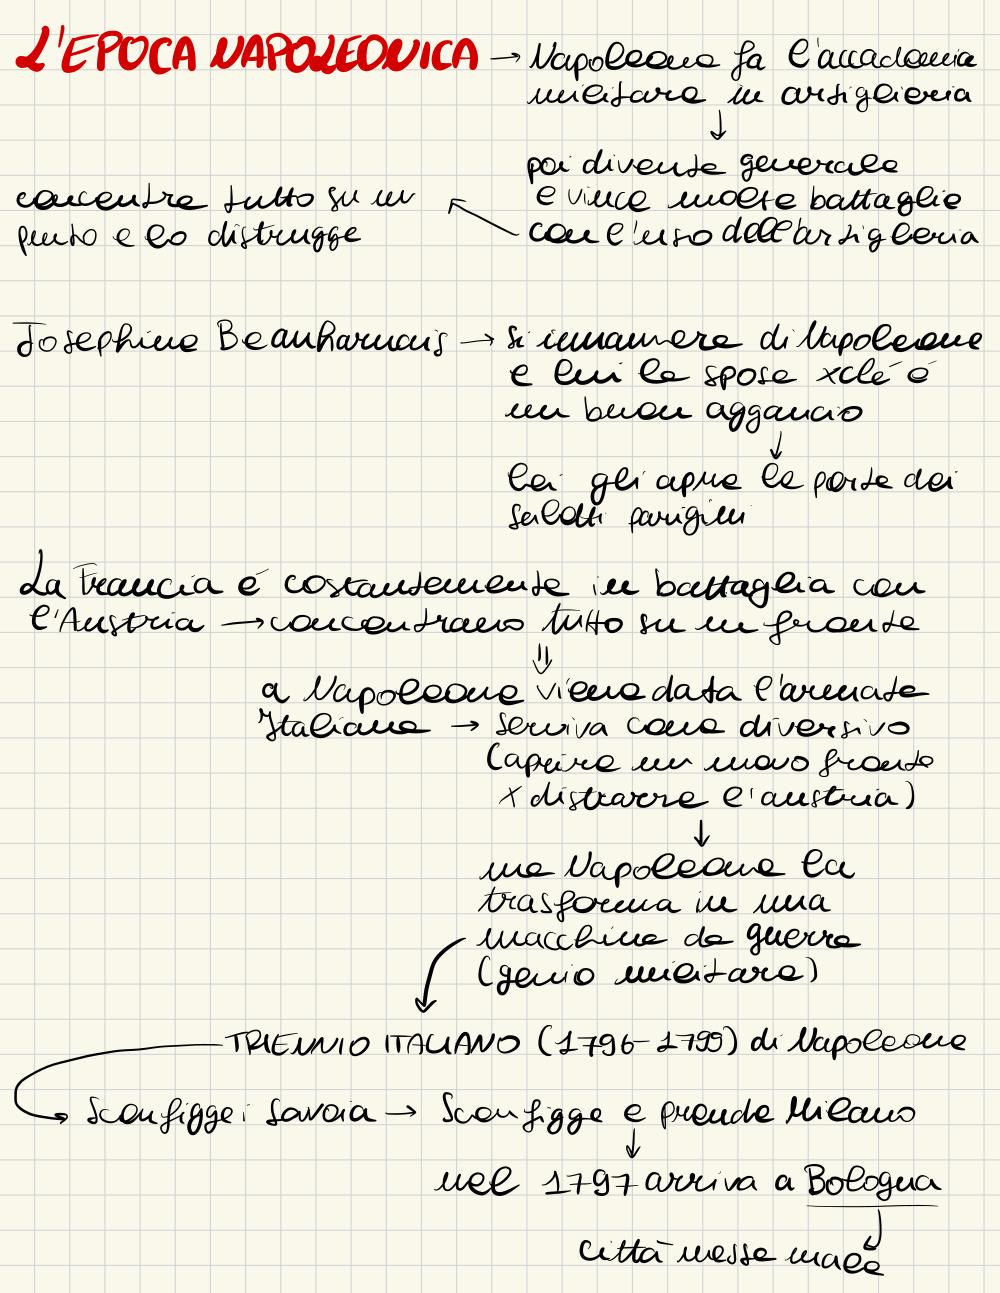 L'EPOCA NAPOLEONICA → Napoleone fa l'accademia
militare in artiglieria
↓
poi diventa generale
e vince molte battaglie
con l'uso dell'artiglieria
concentra tutto su un
punto e lo distrugge
Josephine Beauharnais → si innamora di Napoleone
e lui la sposa xché é
un buon aggancio
↓
lei gli apre le porte dei
salotti parigini
La Francia é costantemente in battaglia con
l'Austria → concentrano tutto su un fronte
⇓
a Napoleone viene data l'armata
Italiana → serviva come diversivo
(aprire un nuovo fronte
x distrarre l'austria)
↓
ma Napoleone la
trasforma in una
macchina da guerra
(genio militare)
TRIENNIO ITALIANO (1796-1799) di Napoleone
Sconfigge i Savoia → Sconfigge e prende Milano
↓
nel 1797 arriva a Bologna
città messa male